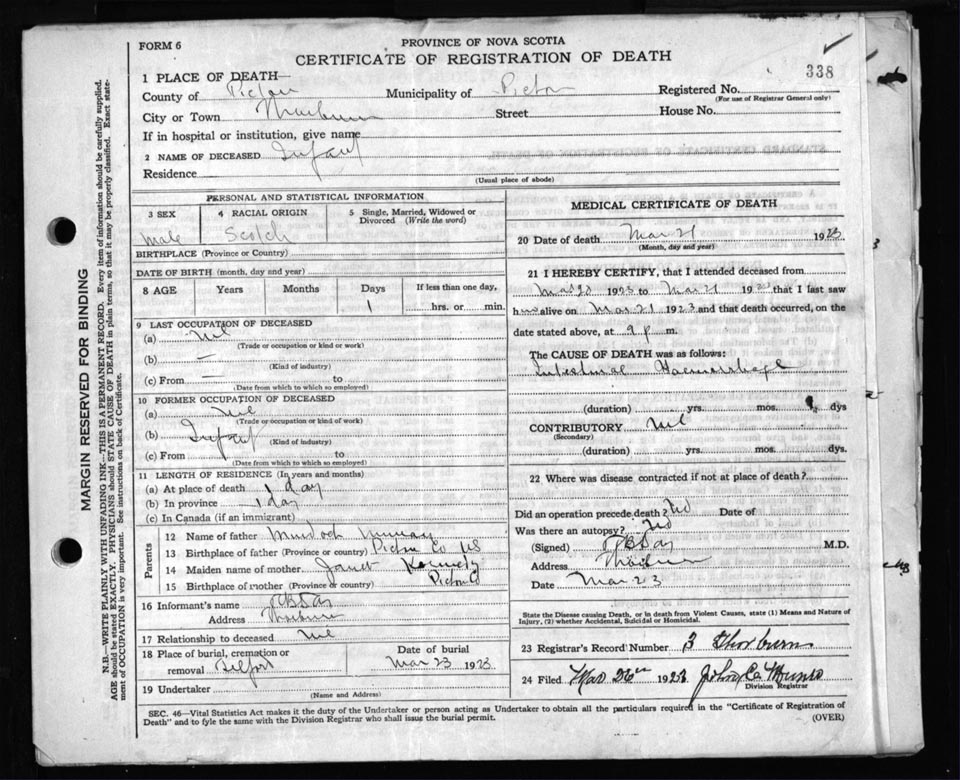 FORM 6
PROVINCE OF NOVA SCOTIA
CERTIFICATE OF REGISTRATION OF DEATH
338
1 PLACE OF DEATH—
County of Pictou Municipality of Pictou Registered No.
(For use of Registrar General only)
City or Town Thorburn Street House No.
If in hospital or institution, give name
2 NAME OF DECEASED Infant
Residence
(Usual place of abode)
PERSONAL AND STATISTICAL INFORMATION
3 SEX
4 RACIAL ORIGIN
5 Single, Married, Widowed or Divorced (Write the word)
Male Scotch
BIRTHPLACE (Province or Country)
DATE OF BIRTH (month, day and year)
8 AGE Years Months Days If less than one day,
1 hrs. or min.
9 LAST OCCUPATION OF DECEASED
(a) Nil
(Trade or occupation or kind or work)
(b) —
(Kind of industry)
(c) From — to
(Date from which to which so employed)
10 FORMER OCCUPATION OF DECEASED
(a) Nil
(Trade or occupation or kind of work)
(b) Infant
(Kind of industry)
(c) From to
(Date from which to which so employed)
11 LENGTH OF RESIDENCE (In years and months)
(a) At place of death 1 day
(b) In province 1 day
(c) In Canada (if an immigrant)
Parents
12 Name of father Murdoch Murray
13 Birthplace of father (Province or country) Pictou Co NS
14 Maiden name of mother Janet Kennedy
15 Birthplace of mother (Province or country) Pictou Co
16 Informant's name
Address Thorburn
17 Relationship to deceased Nil
18 Place of burial, cremation or removal
Date of burial
Mar 23 1923
19 Undertaker
(Name and Address)
MEDICAL CERTIFICATE OF DEATH
20 Date of death Mar 21 1923
(Month, day and year)
21 I HEREBY CERTIFY, that I attended deceased from
Mar 20 1923 to Mar 21 1923 that I last saw
him alive on Mar 21 1923 and that death occurred, on the
date stated above, at 9 p m.
The CAUSE OF DEATH was as follows:
Intestinal Haemorrhage
(duration) yrs. mos. dys
CONTRIBUTORY Nil
(Secondary)
(duration) yrs. mos. dys.
22 Where was disease contracted if not at place of death?
Did an operation precede death? No Date of
Was there an autopsy? No
(Signed) M.D.
Address Thorburn
Date Mar 23
State the Disease causing Death, or in death from Violent Causes, state (1) Means and Nature of
Injury, (2) whether Accidental, Suicidal or Homicidal.
23 Registrar's Record Number 3 Thorburn
24 Filed Mar 26th 1923 John C. Munro
Division Registrar
SEC. 46—Vital Statistics Act makes it the duty of the Undertaker or person acting as Undertaker to obtain all the particulars required in the "Certificate of Registration of
Death" and to fyle the same with the Division Registrar who shall issue the burial permit.
(OVER)
MARGIN RESERVED FOR BINDING
N.B.—WRITE PLAINLY WITH UNFADING INK—THIS IS A PERMANENT RECORD. Every item of information should be carefully supplied.
AGE should be stated EXACTLY. PHYSICIANS should STATE CAUSE OF DEATH in plain terms, so that it may be properly classified. Exact state-
ment of OCCUPATION is very important. See instructions on back of Certificate.